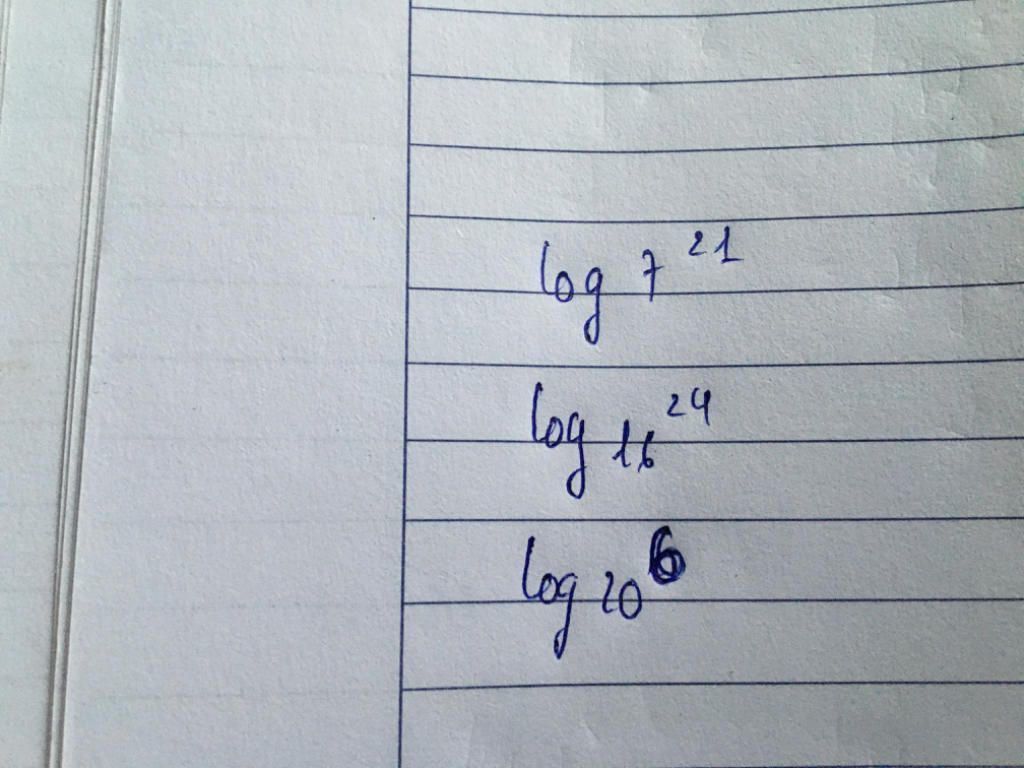 log 7 ²¹
log ₁₆ ²⁴
log 20 ⁶